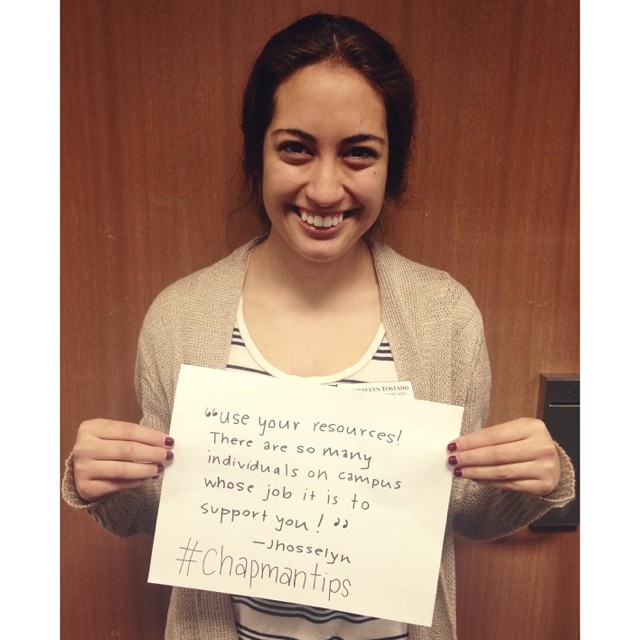 TOSTADO
“Use your resources!
There are so many
individuals on campus
whose job it is to
support you! ”
—Jhosselyn
#Chapmantips